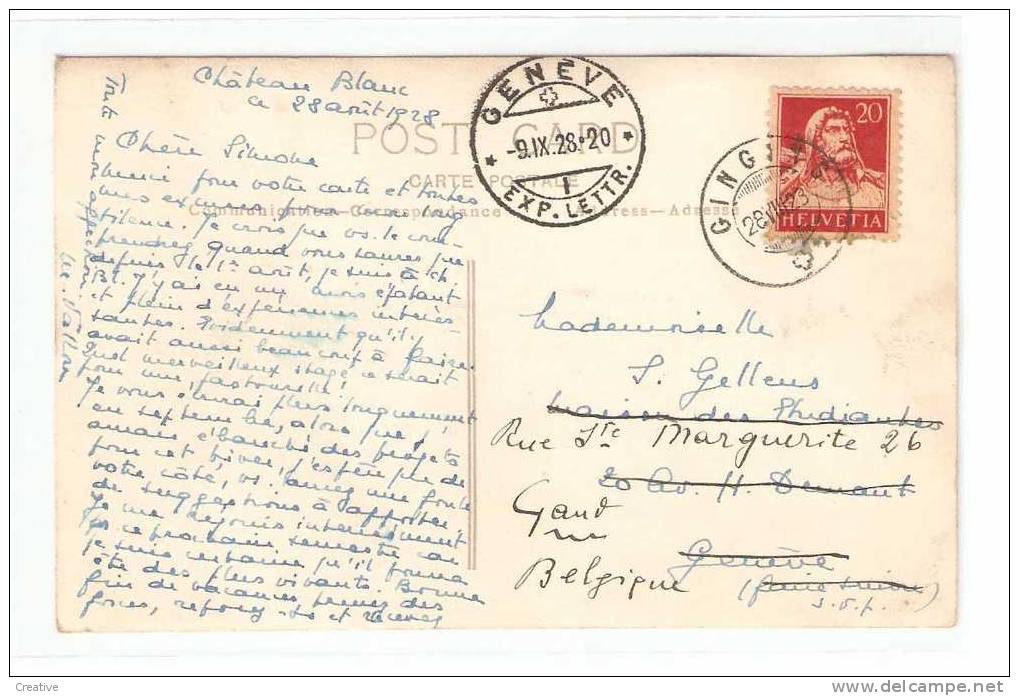 Château Blanc
ce 28 août 1928
POST CARD
CARTE POSTALE
Communication—Correspondance
Address—Adresse
Chère Simone
Merci pour votre carte et toutes
mes excuses pour mon long
silence. Je crois que vs. le com-
prendrez quand vous saurez que
depuis le 1er août, je suis à Ch.
Bl. J'y ai eu un mois épatant
et plein d'expériences intéres-
santes. Evidemment qu'il y
avait aussi beaucoup à faire.
Quel merveilleux stage ce serait
pour une "pastourelle"!
Je vous écrirai plus longuement
en septembre, alors que j'
aurais ébauché des projets
pour cet hiver, j'espère que de
votre côté, vs. aurez une foule
de suggestions à apporter.
Je me réjouis intensément
de ce prochain semestre car
je suis certaine qu'il pourra
être des plus vivants. Bonne
fin de vacances, prenez des
forces, reposez-vs et recevez
Toute mon affection
GENÈVE
-9.IX.28.-20
1
EXP. LETTR.
GINGINS
28
20
HELVETIA
Mademoiselle
S. Gellens
Maison des Etudiantes
Rue Ste Marguerite 26
20 Av. H. Dunant
Gand
Genève
Belgique
(faire suivre)
s.v.p.
Creative
www.delcampe.net